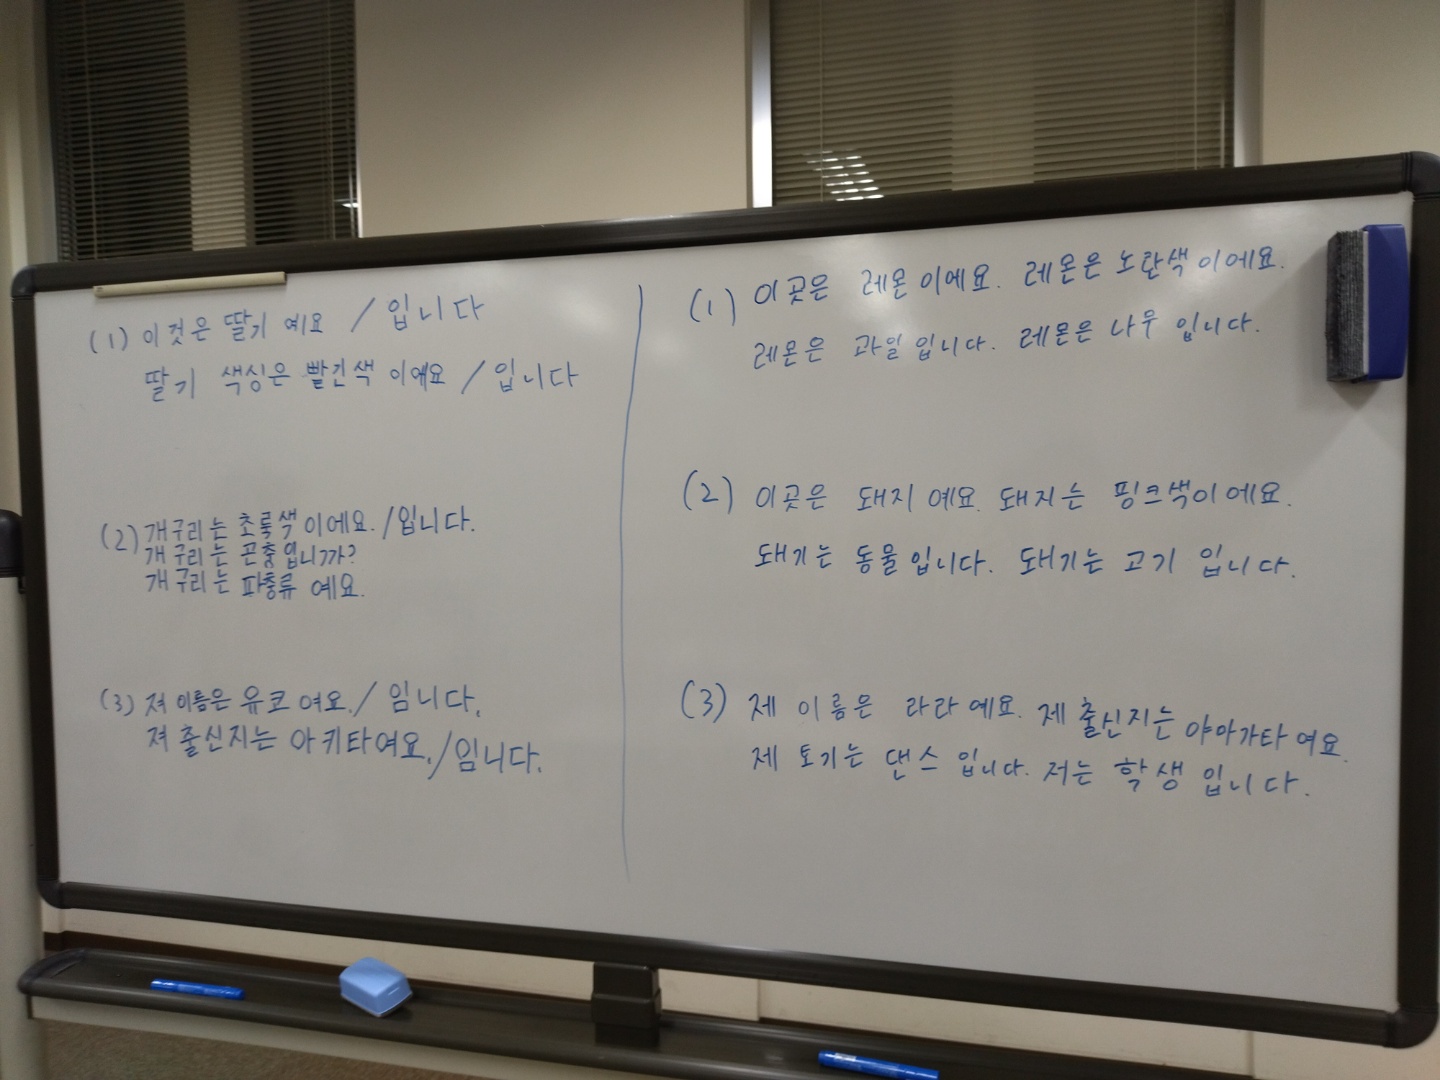 (1) 이것은 딸기 예요 / 입니다
딸기 색싱은 빨긴색 이예요 / 입니다
(2) 개구리는 초록색 이에요. / 입니다.
개구리는 곤충입니까?
개구리는 파충류 예요.
(3) 져 이름은 유코 여요. / 임니다.
져 출신지는 아키타여요. / 임니다.
(1) 이곳은 레몬이에요. 레몬은 노란색이에요.
레몬은 과일입니다. 레몬은 나무 입니다.
(2) 이곳은 돼지 예요. 돼지는 핑크색이에요.
돼기는 동물입니다. 돼기는 고기 입니다.
(3) 제 이름은 라라 예요. 제 출신지는 야아가타 여요.
제 토기는 댄스 입니다. 저는 학생 입니다.